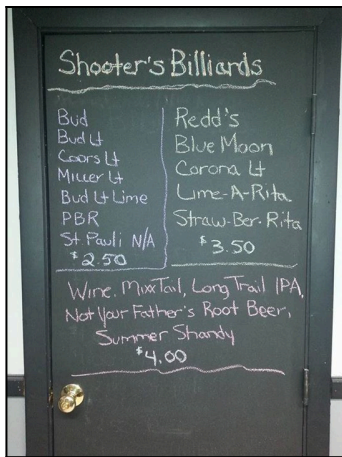 Shooter's Billiards
Bud
Bud Lt
Coors Lt
Miller Lt
Bud Lt Lime
PBR
St Pauli N/A
$2.50
Redd's
Blue Moon
Corona Lt
Lime-A-Rita
Straw-Ber-Rita
$3.50
Wine, MixxTail, Long Trail IPA,
Not Your Father's Root Beer,
Summer Shandy
$4.00